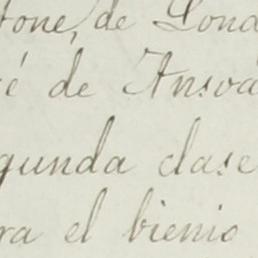 tone, de Lond
é de Ansoá
gunda clase
ra el bienio